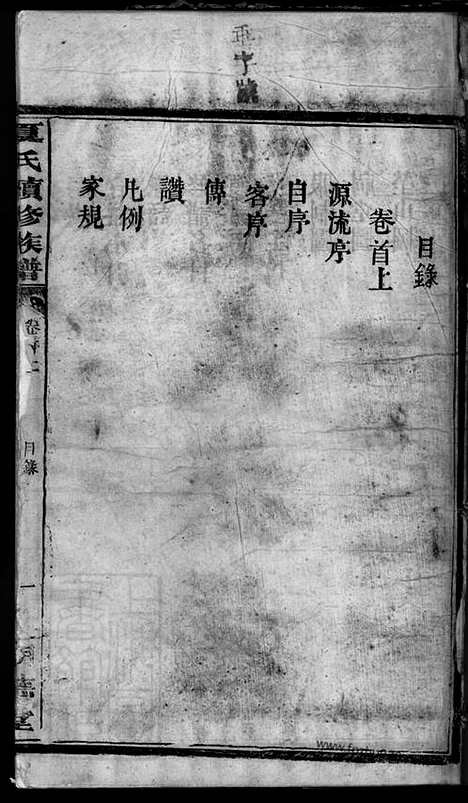 目錄
卷首上
源流序
自序
客序
傳
讚
凡例
家規
夏氏續修族譜
卷首上
目錄
一